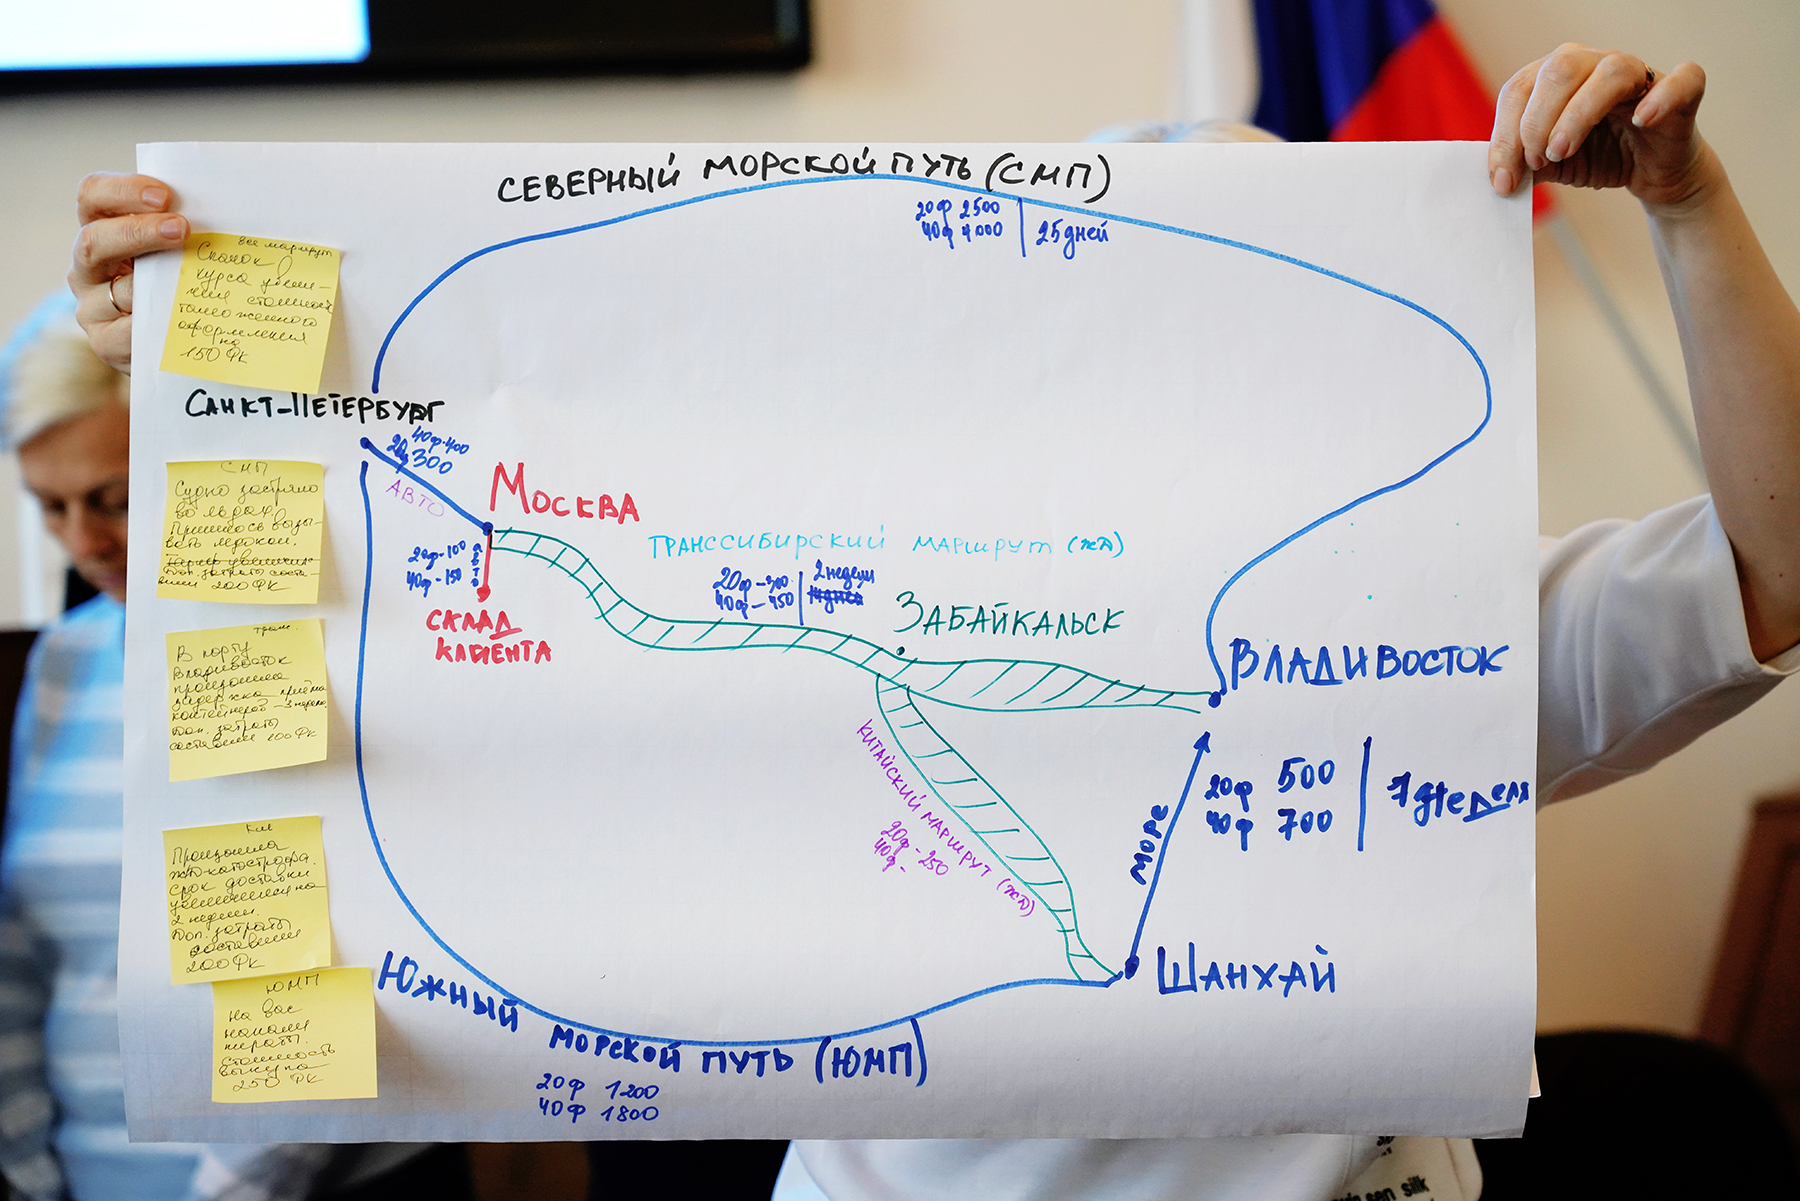 СЕВЕРНЫЙ МОРСКОЙ ПУТЬ (СМП)
20ф 2500
40ф 4000
25 дней
все маршрут
Скачок
курса увели-
чил стоимость
таможенного
оформления
на
150 ФК
САНКТ-ПЕТЕРБУРГ
40ф-400
20ф 300
АВТО
МОСКВА
20ф-100
40ф-150
АВТО
СКЛАД
КЛИЕНТА
ТРАНССИБИРСКИЙ МАРШРУТ (ЖД)
20ф-300
40ф-450
2 недели
ЗАБАЙКАЛЬСК
ВЛАДИВОСТОК
СМП
Судно застряло
во льдах
Пришлось вызы-
вать ледокол.
Доп. затраты соста-
вили 200 ФК
транс.
В порту
Владивосток
произошла
задержка приёма
контейнеров - 3 недели
Доп. затраты
составили 100 ФК
КИТАЙСКИЙ МАРШРУТ (ЖД)
20ф-250
40ф-
МОРЕ
20ф 500
40ф 700
ШАНХАЙ
Произошла
ж/д катастрофа.
Срок доставки
увеличился на
2 недели.
Доп. затраты
составили
200 ФК
ЮМП
На вас
напали
пираты.
Стоимость
выкупа
250 ФК
ЮЖНЫЙ МОРСКОЙ ПУТЬ (ЮМП)
20ф 1200
40ф 1800
silk